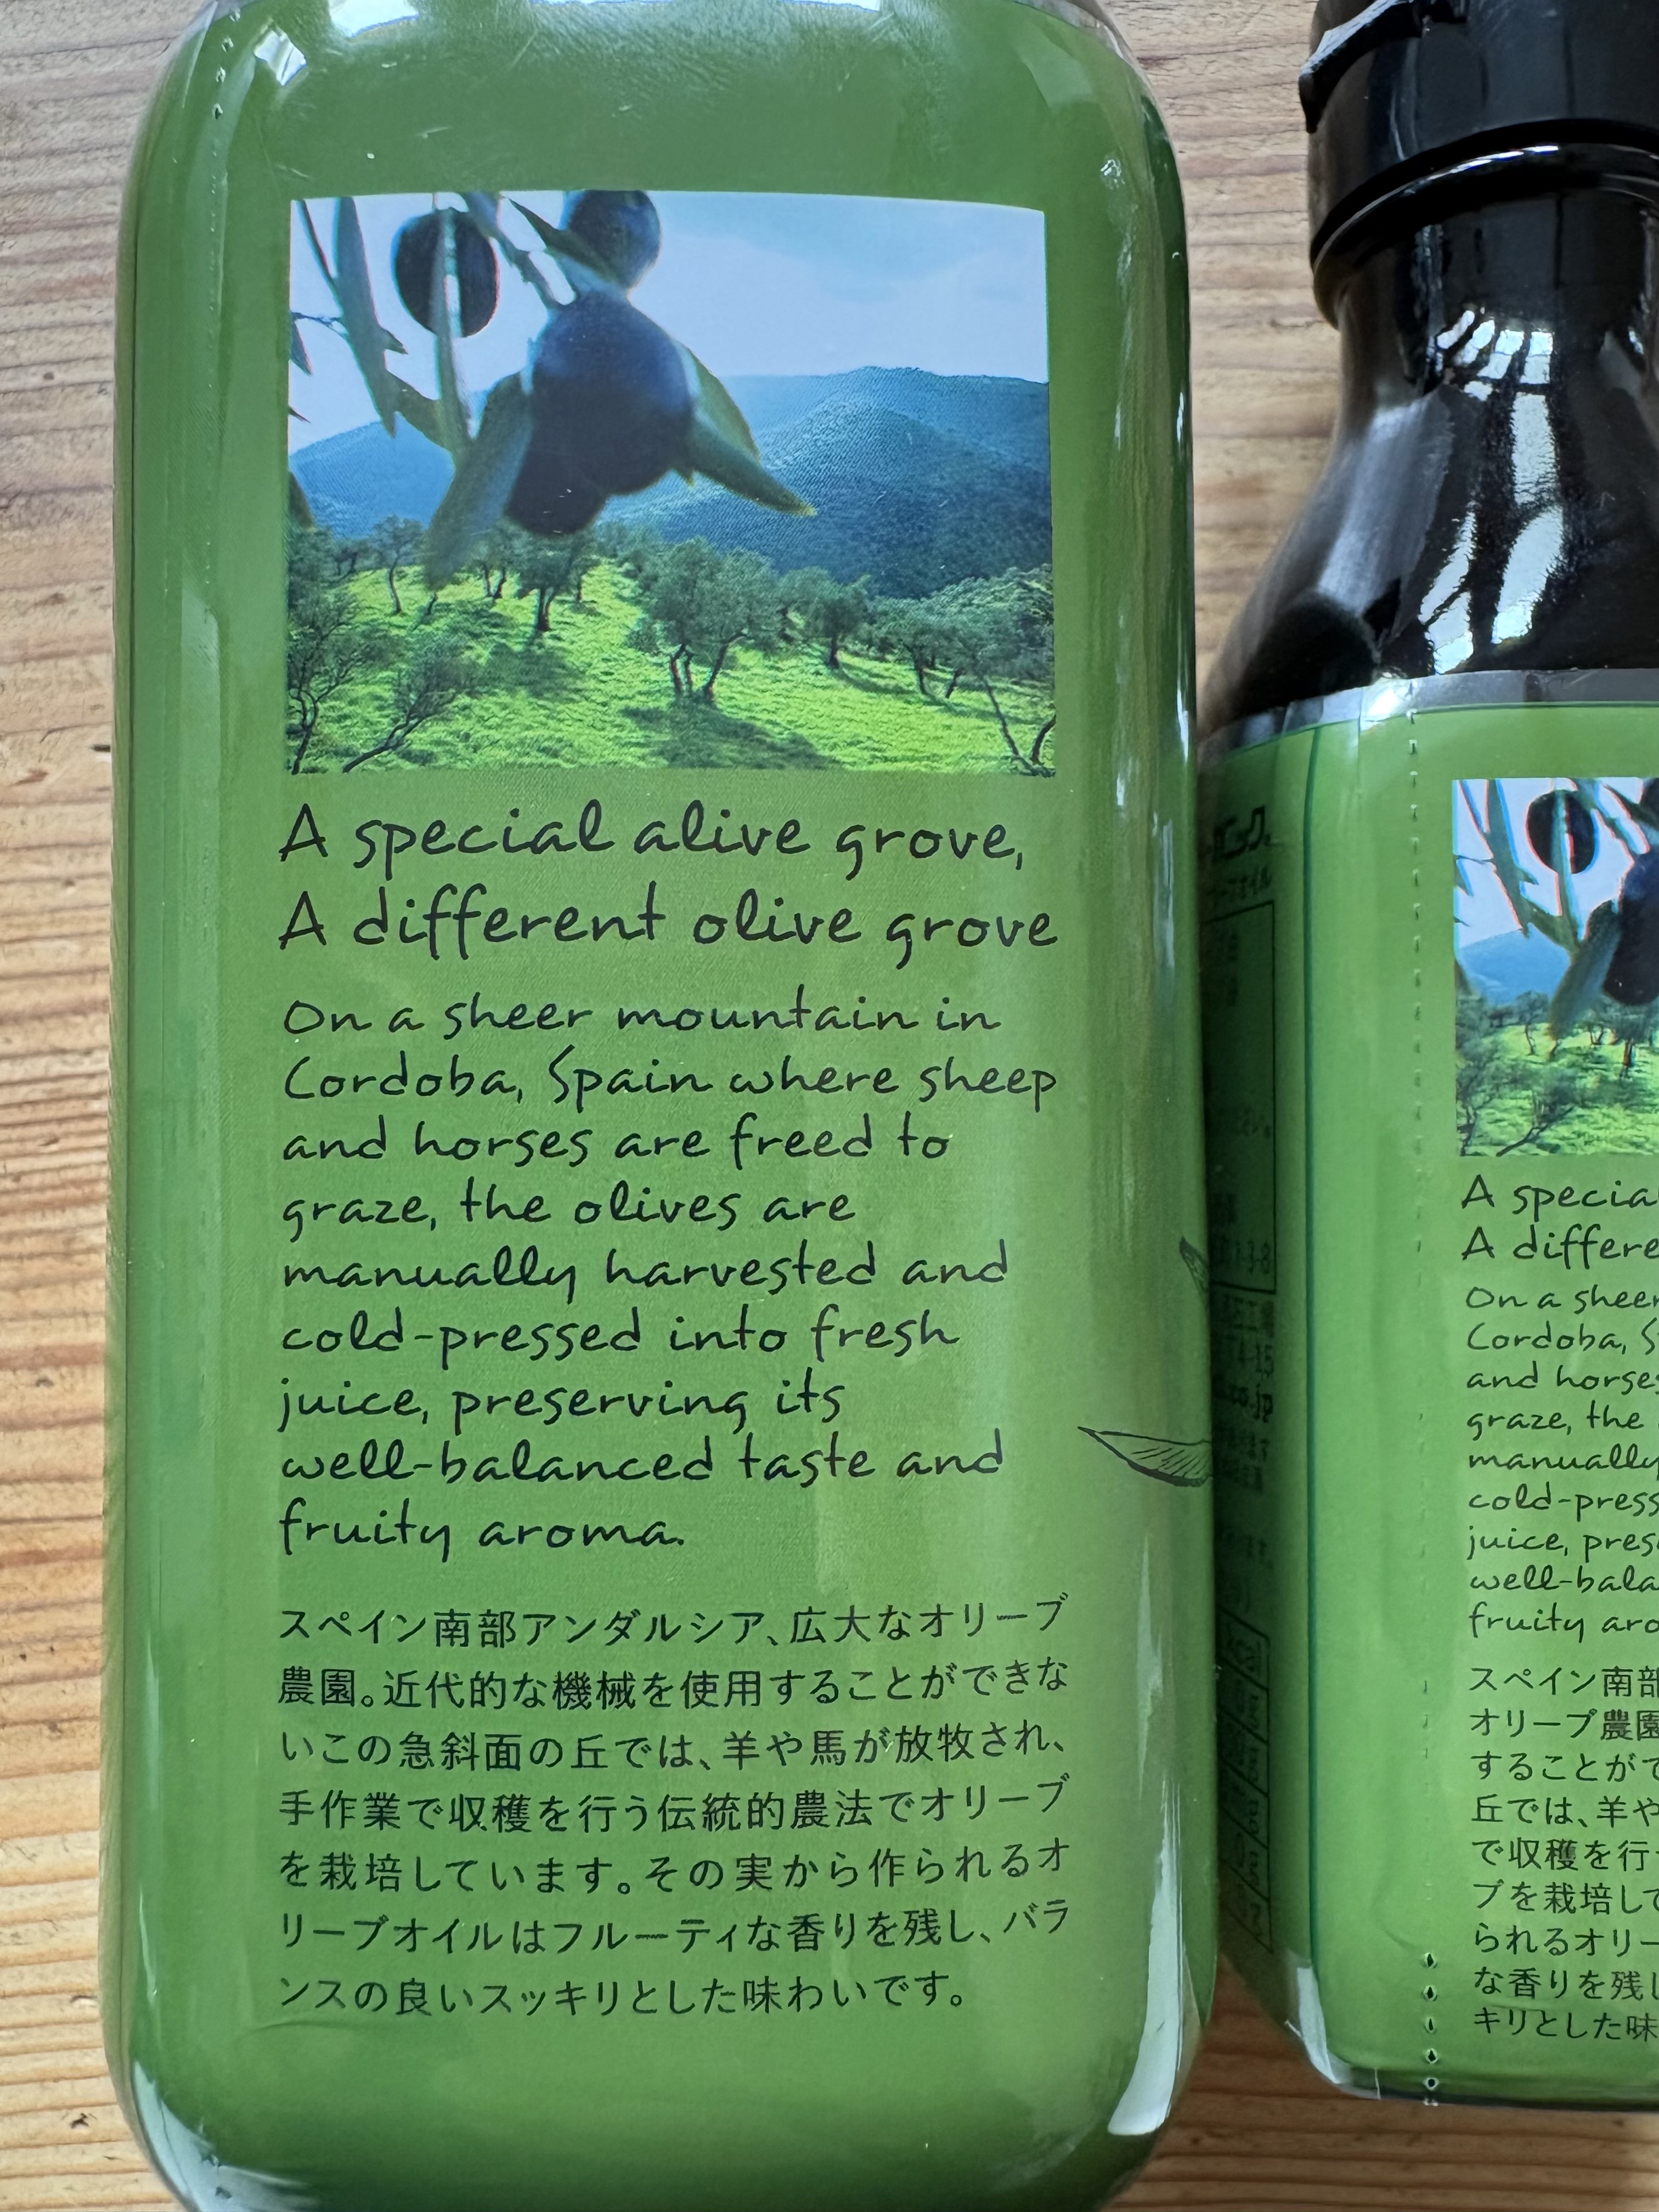 A special alive grove,
A different olive grove
On a sheer mountain in
Cordoba, Spain where sheep
and horses are freed to
graze, the olives are
manually harvested and
cold-pressed into fresh
juice, preserving its
well-balanced taste and
fruity aroma.
スペイン南部アンダルシア、広大なオリーブ
農園。近代的な機械を使用することができな
いこの急斜面の丘では、羊や馬が放牧され、
手作業で収穫を行う伝統的農法でオリーブ
を栽培しています。その実から作られるオ
リーブオイルはフルーティな香りを残し、バラ
ンスの良いスッキリとした味わいです。
A specia
A differe
On a sheer
Cordoba, S
and horses
graze, the
manually
cold-press
juice, pres
well-bala
fruity aro
スペイン南部
オリーブ農園
することがで
丘では、羊や
で収穫を行
ブを栽培して
られるオリー
な香りを残し
キリとした味